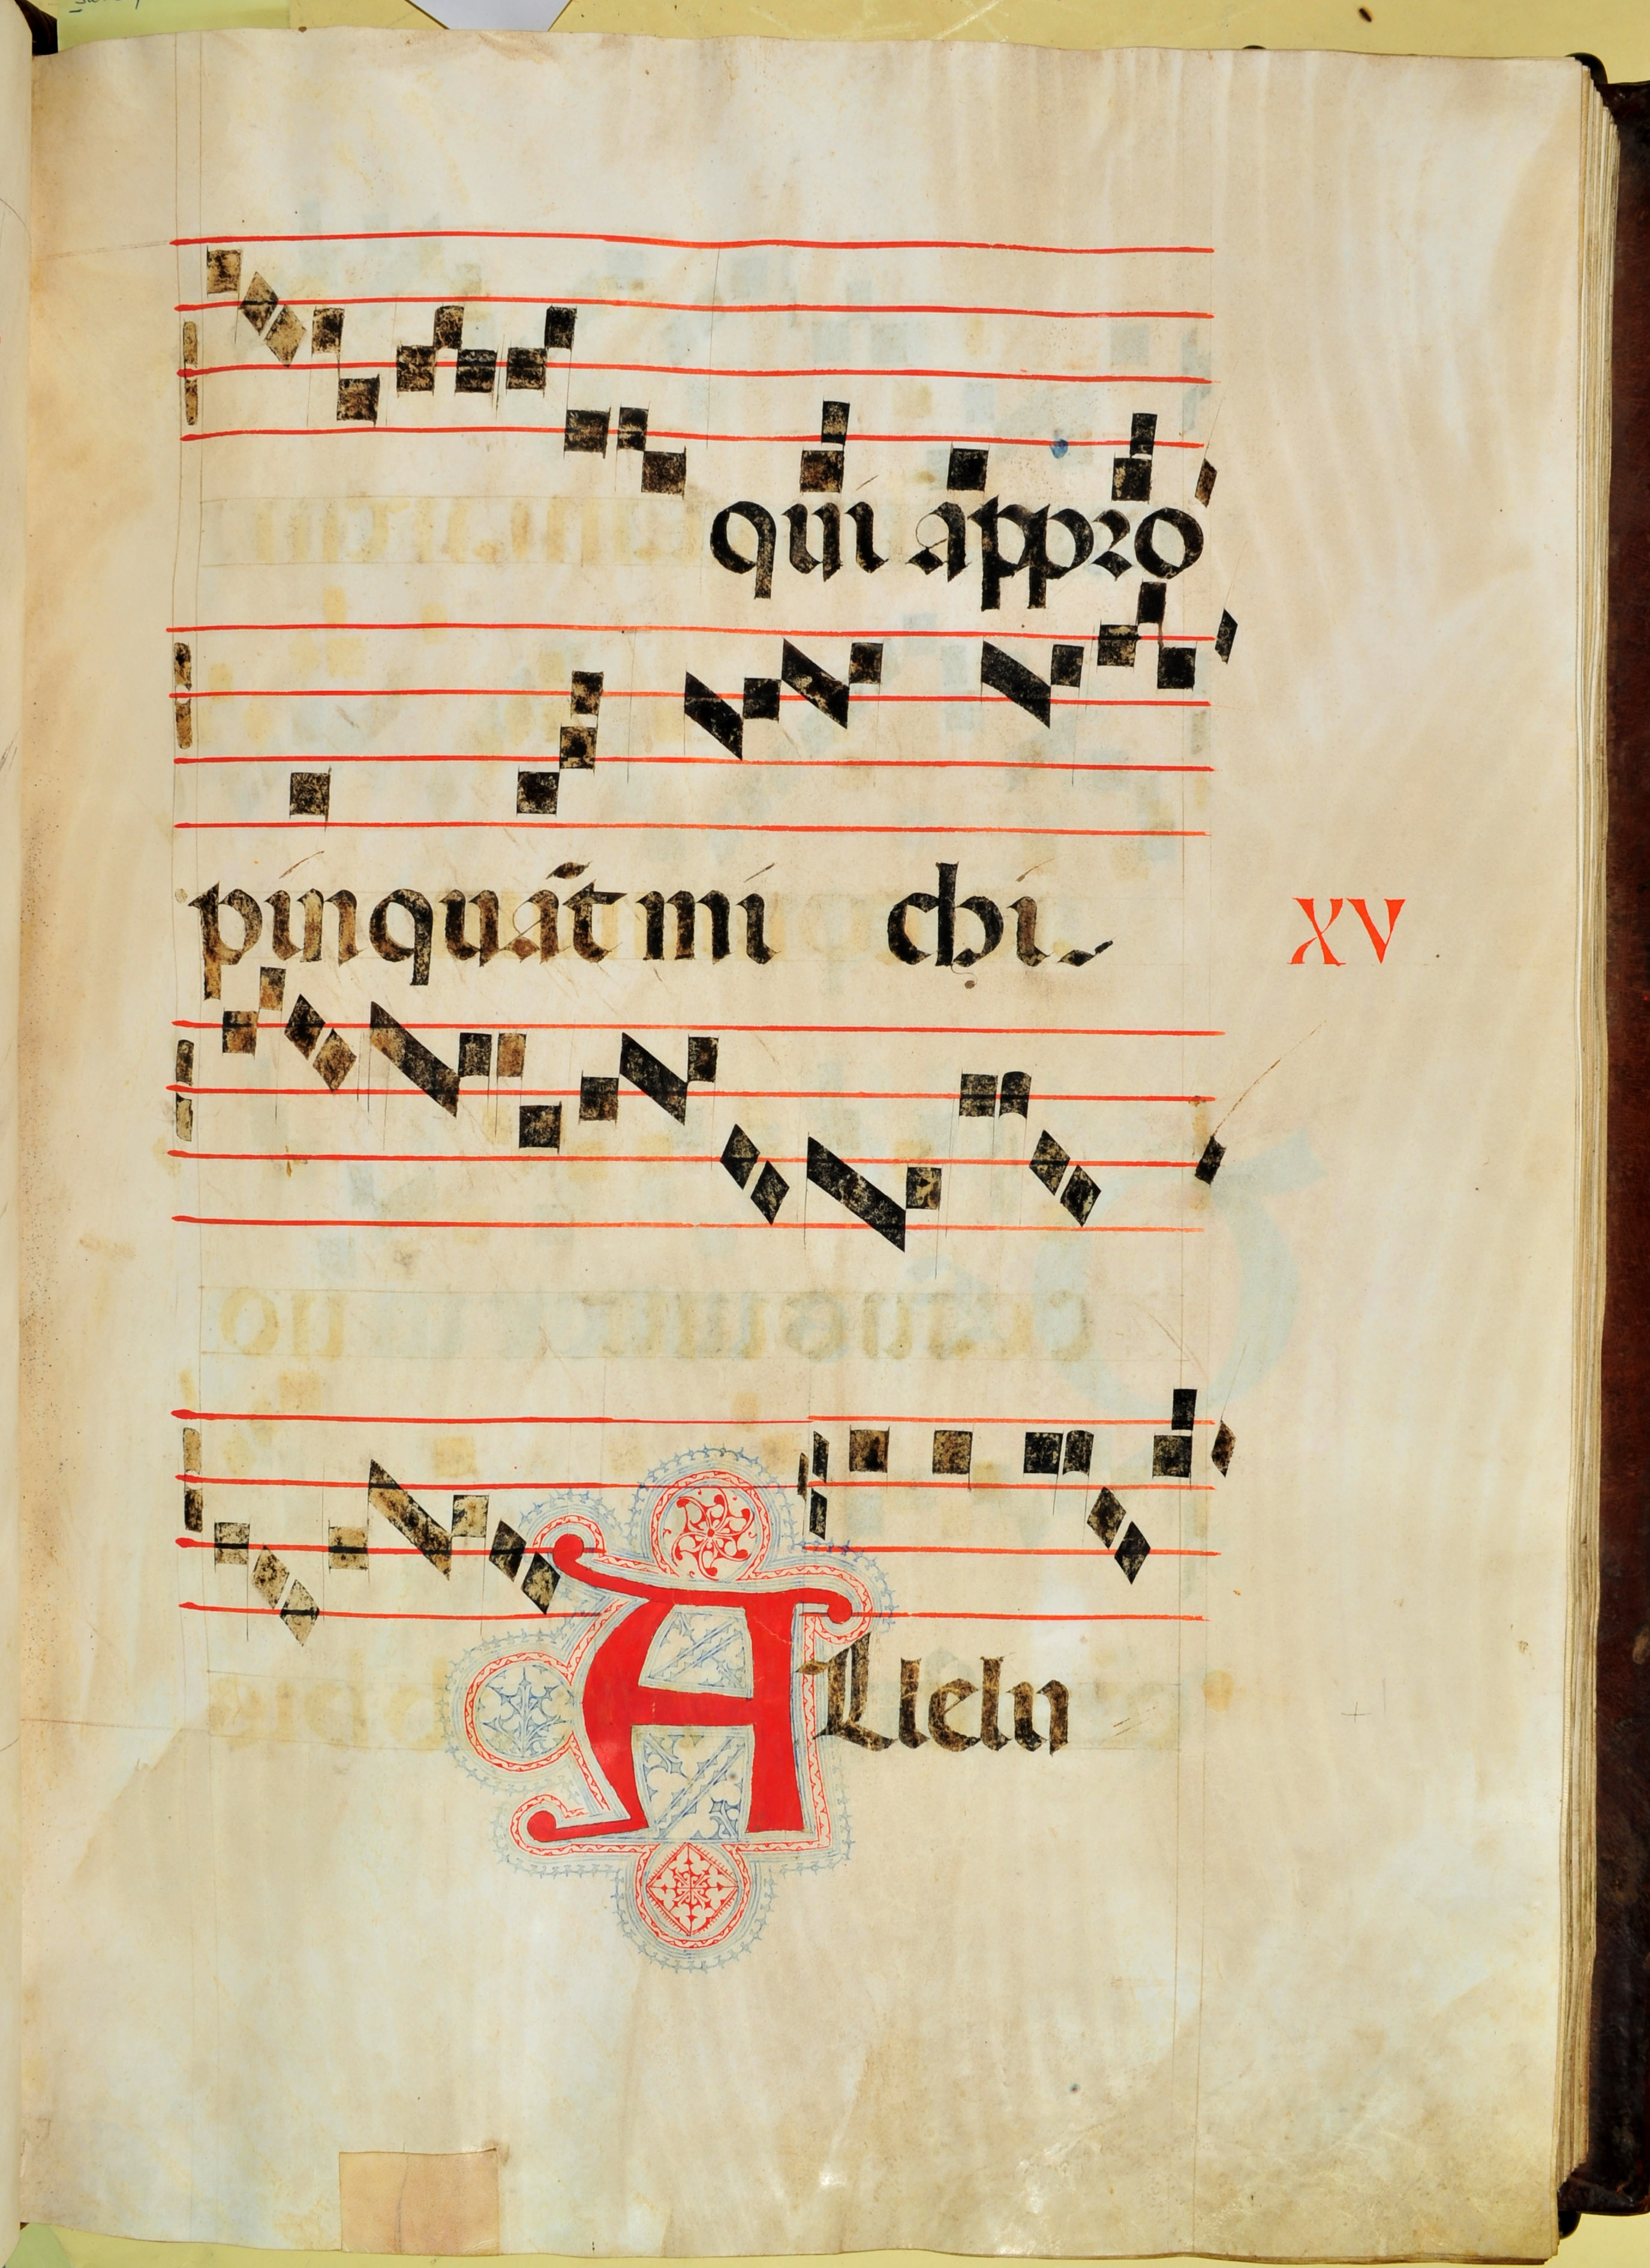 qui appro
pinquāt mi chi
XV
ALleln